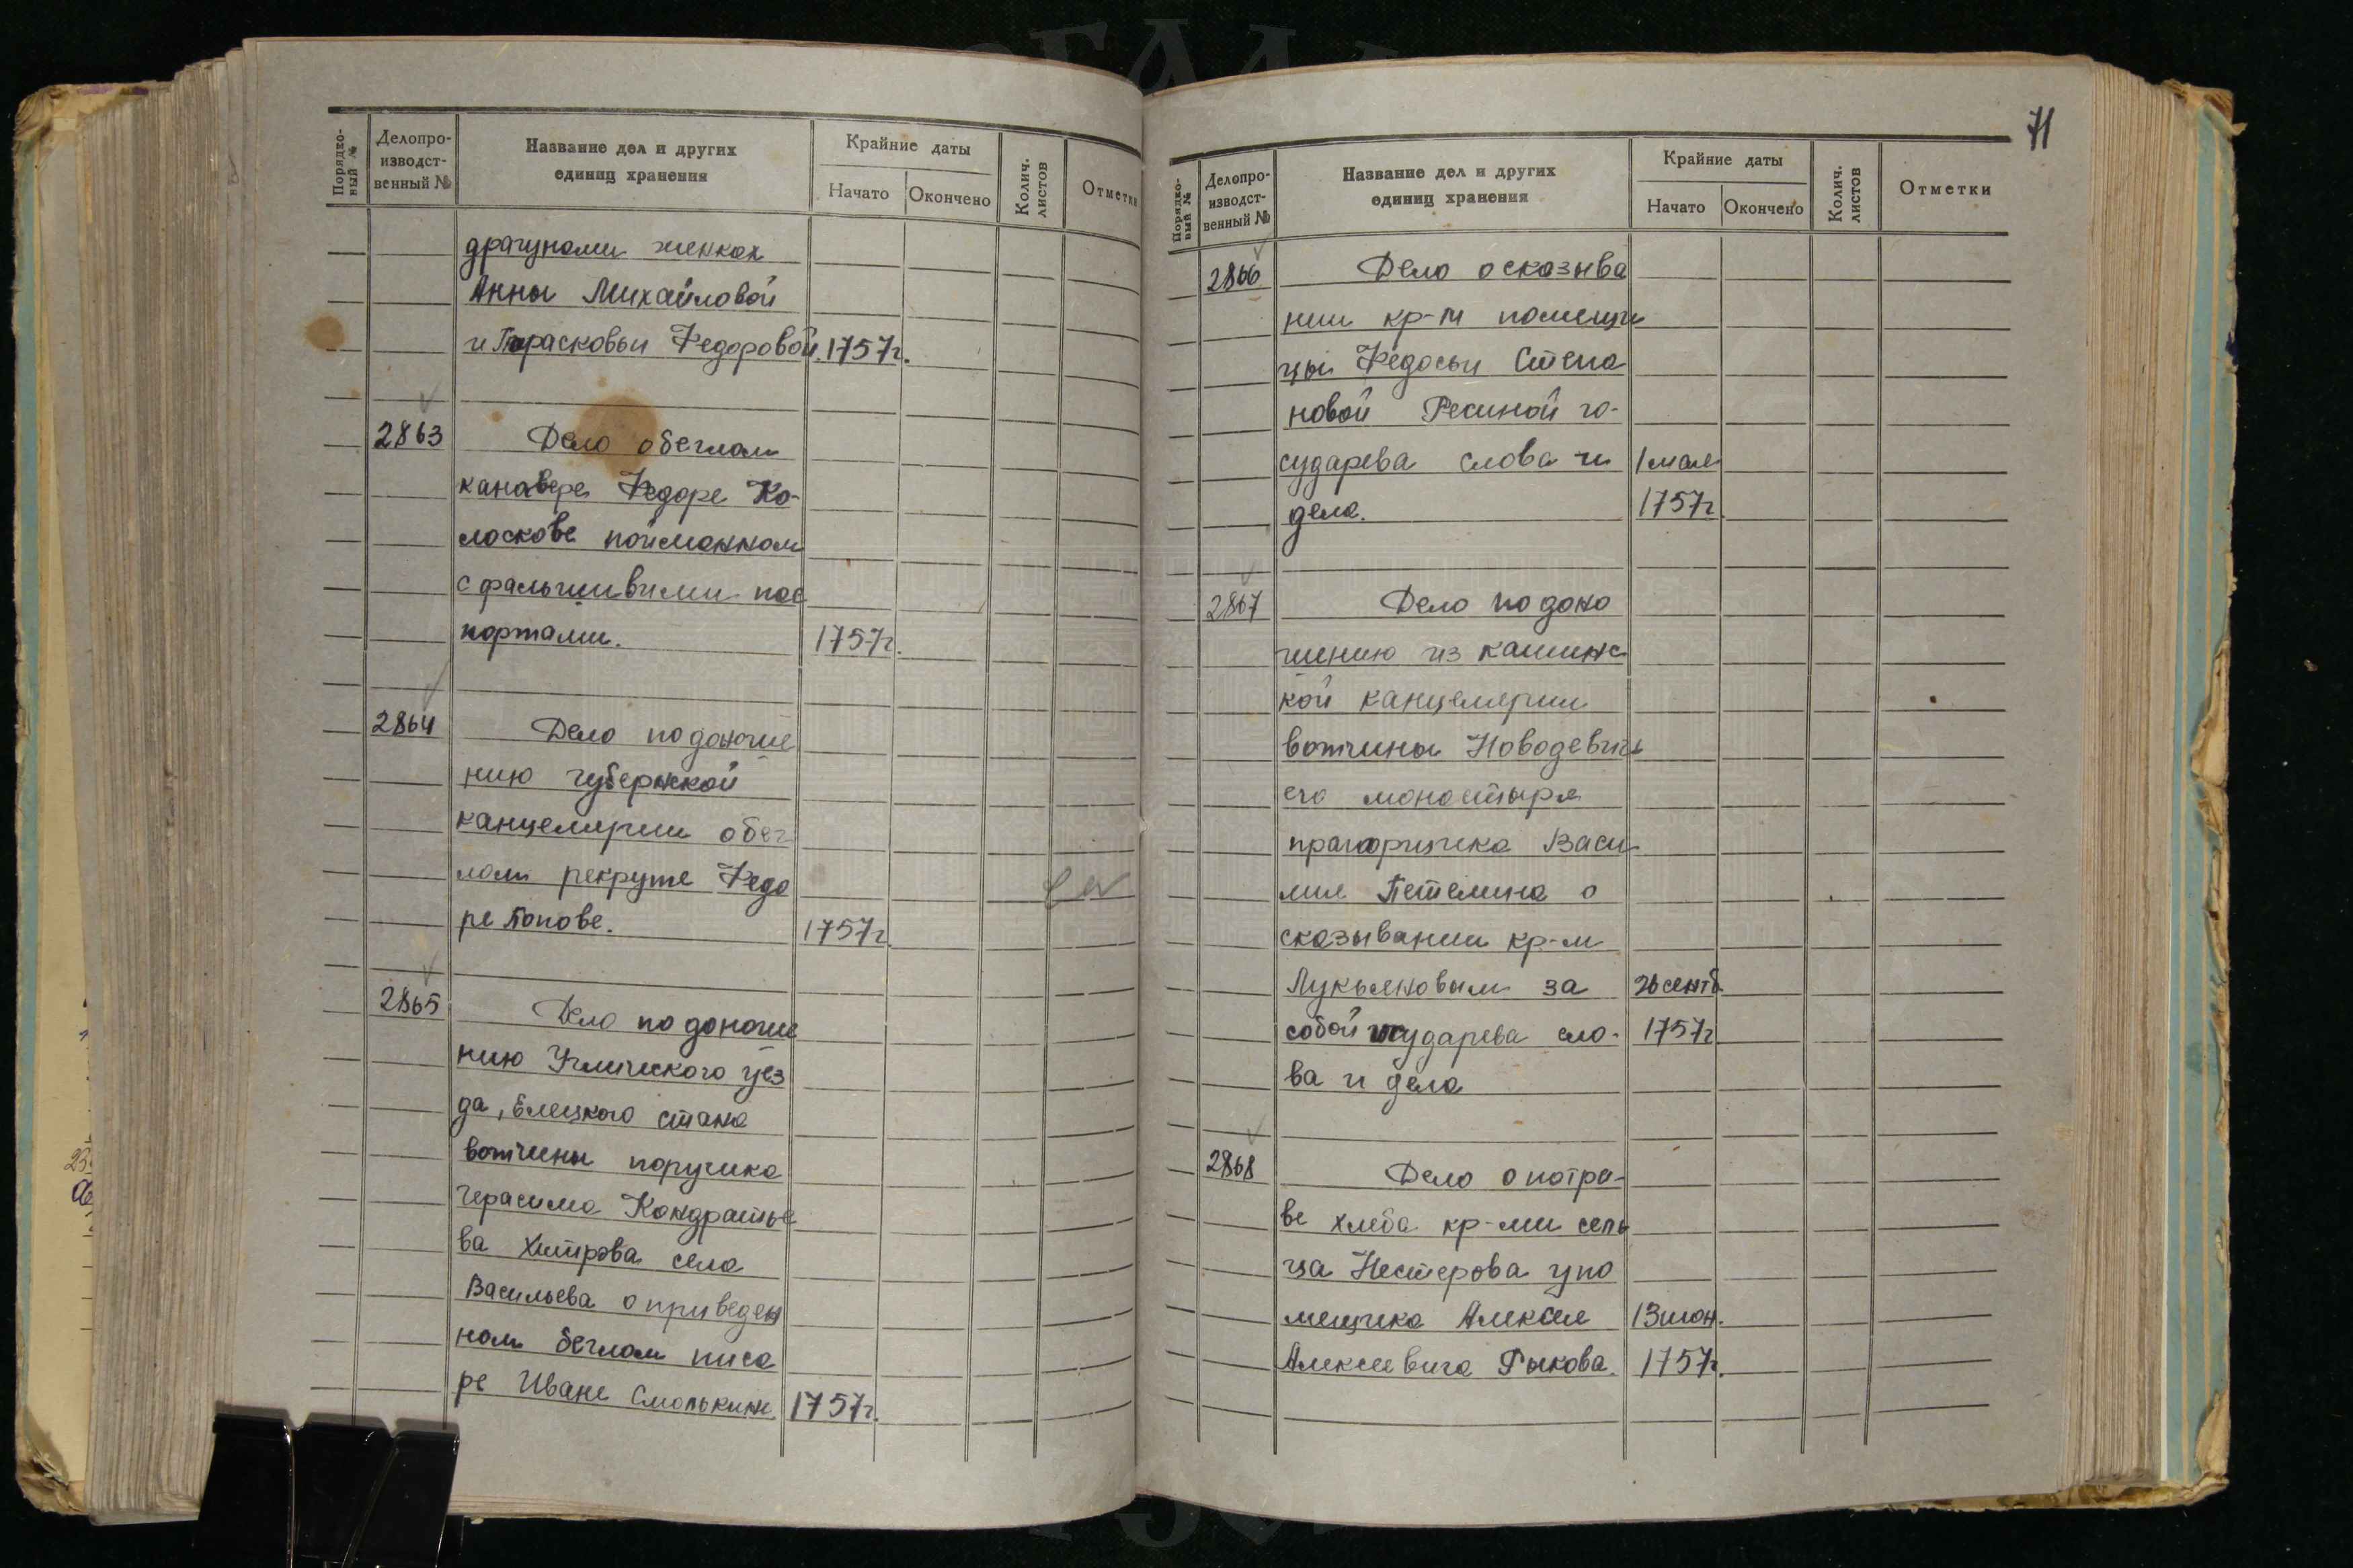 Порядко-
вый №
Делопро-
изводст-
венный №
Название дел и других
единиц хранения
Крайние даты
Начато
Окончено
Колич.
листов
Отметки
драгунами женках
Анны Михайловой
и Парасковьи Федоровой. 1757г.
2863 Дело обеглом
канавере Федоре Ко-
лоскове пойманном
с фальшивыми пас
портами. 1757г.
2864 Дело по доноше
нию губернской
канцелярии обег
лом рекруте Федо
ре Попове. 1757г.
2865 Дело по доноше
нию Угличского уез
да, Елецкого стана
вотчины поручика
Герасима Кондратье
ва Хитрова села
Васильева о приведен
ном беглом писа
ре Иване Смолькине 1757г.
71
Порядко-
вый №
Делопро-
изводст-
венный №
Название дел и других
единиц хранения
Крайние даты
Начато
Окончено
Колич.
листов
Отметки
2866 Дело о сказыва
нии кр-м помещи
цы Федосьи Степа
новой Ресиной го-
сударева слова и 1 мая
дела. 1757г
2867 Дело по доно
шению из кашинс
кой канцелярии
вотчины Новодевичь
его монастыря
прапорщика Васи
лия Петелина о
сказывании кр-м
Лукьяновым за 26 сентб
собой государева сло- 1757г
ва и дела
2868 Дело о потра-
ве хлеба кр-ми сель
ца Нестерова у по
мещика Алексея 13 июн.
Алексеевича Рыкова. 1757г.